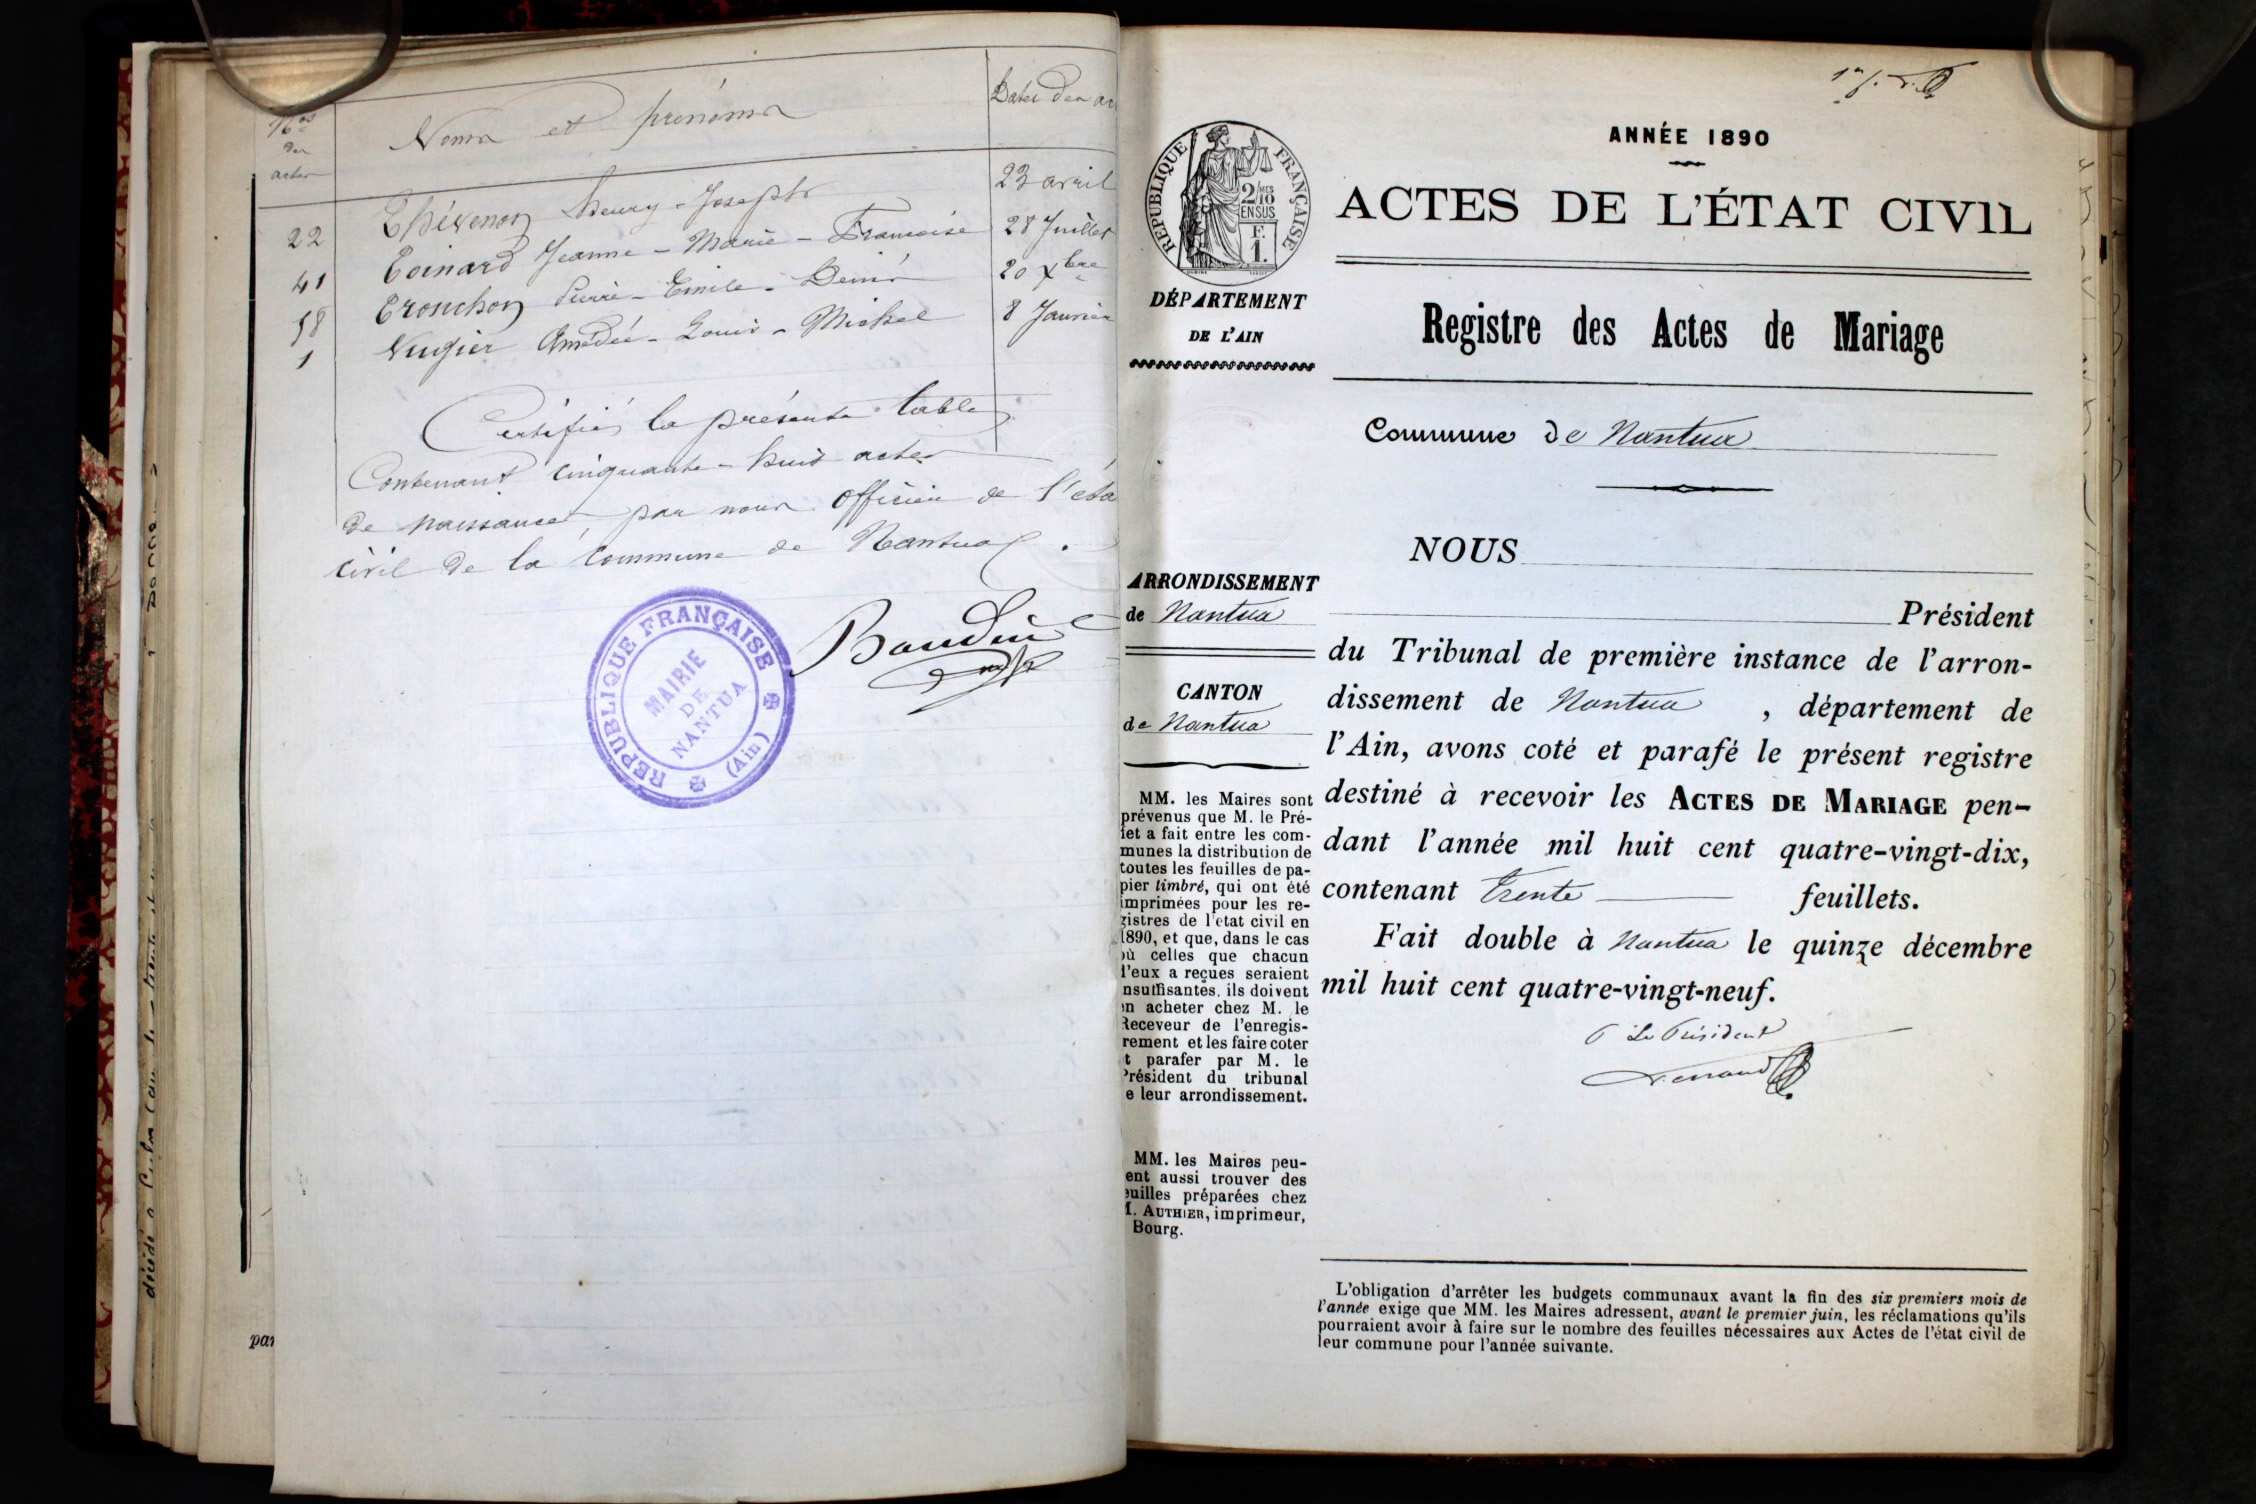 Nos
des
actes
Noms et prénoms
Dates des ac
22 Thévenon Henry - Joseph 23 avril
41 Toinard Jeanne - Marie - Francoise 28 Juillet
58 Tronchon Pierre - Emile - Denis 20 Xbre
1 Vugier Amédée - Louis - Michel 8 Janvier
Certifié la présente table
Contenant cinquante - huit actes
de naissance, par nous officier de l'éta
civil de la commune de Nantua.
Baudin
REPUBLIQUE FRANÇAISE
MAIRIE
DE
NANTUA
(Ain)
par
ANNÉE 1890
ACTES DE L'ÉTAT CIVIL
Registre des Actes de Mariage
Commune de Nantua
REPUBLIQUE FRANÇAISE
2/10MES
EN SUS
F.
1.
DÉPARTEMENT
DE L'AIN
ARRONDISSEMENT
de Nantua
CANTON
de Nantua
MM. les Maires sont
prévenus que M. le Pré-
fet a fait entre les com-
munes la distribution de
toutes les feuilles de pa-
pier timbré, qui ont été
imprimées pour les re-
gistres de l'état civil en
1890, et que, dans le cas
où celles que chacun
d'eux a reçues seraient
nsuffisantes, ils doivent
en acheter chez M. le
Receveur de l'enregis-
rement et les faire coter
t parafer par M. le
Président du tribunal
e leur arrondissement.
MM. les Maires peu-
ent aussi trouver des
euilles préparées chez
M. AUTHIER, imprimeur,
Bourg.
NOUS
Président
du Tribunal de première instance de l'arron-
dissement de Nantua, département de
l'Ain, avons coté et parafé le présent registre
destiné à recevoir les ACTES DE MARIAGE pen-
dant l'année mil huit cent quatre-vingt-dix,
contenant trente feuillets.
Fait double à Nantua le quinze décembre
mil huit cent quatre-vingt-neuf.
P Le Président
L'obligation d'arrêter les budgets communaux avant la fin des six premiers mois de
l'année exige que MM. les Maires adressent, avant le premier juin, les réclamations qu'ils
pourraient avoir à faire sur le nombre des feuilles nécessaires aux Actes de l'état civil de
leur commune pour l'année suivante.